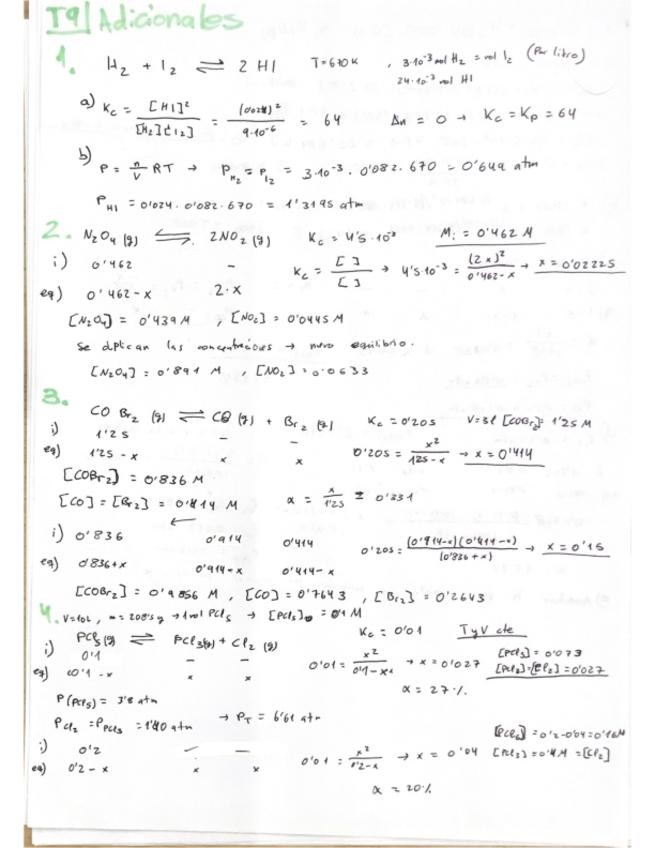 T9 Adicionales
1. H2 + I2 ⇌ 2 HI T=670K , 3·10⁻³ mol H2 = mol I2 (Por litro)
24·10⁻³ mol HI
a) Kc = [HI]² / [H2][I2] = (0'024)² / 9·10⁻⁶ = 64 Δn = 0 → Kc = Kp = 64
b) P = n/V RT → P H2 = P I2 = 3·10⁻³ · 0'082 · 670 = 0'649 atm
P HI = 0'024 · 0'082 · 670 = 1'3195 atm
2. N2O4 (g) ⇌ 2NO2 (g) Kc = 4'5·10⁻³ Mi = 0'462 M
i) 0'462 – Kc = [ ] / [ ] → 4'5·10⁻³ = (2x)² / 0'462-x → x = 0'02225
eq) 0'462-x 2·x
[N2O4] = 0'439 M , [NO2] = 0'0445 M
Se duplican las concentraciones → nuevo equilibrio.
[N2O4] = 0'891 M , [NO2] = 0'0633
3. CO Br2 (g) ⇌ CO (g) + Br2 (g) Kc = 0'205 V=3l [COBr2] = 1'25 M
i) 1'25 – –
eq) 1'25-x x x 0'205 = x² / 1'25-x → x = 0'414
[COBr2] = 0'836 M
[CO] = [Br2] = 0'414 M α = x / 1'25 = 0'331
←
i) 0'836 0'914 0'414 0'205 = (0'914-x)(0'414-x) / (0'836+x) → x = 0'15
eq) 0'836+x 0'914-x 0'414-x
[COBr2] = 0'9856 M , [CO] = 0'7643 , [Br2] = 0'2643
4. V=10L , m = 208'5g → 1 mol PCl5 → [PCl5]0 = 0'1 M
PCl5(g) ⇌ PCl3(g) + Cl2 (g) Kc = 0'01 T y V cte
i) 0'1 – – 0'01 = x² / 0'1-x → x = 0'027 [PCl5] = 0'073
eq) 0'1-x x x [PCl3]=[Cl2] = 0'027
α = 27%
P(PCl5) = 3'8 atm
P Cl2 = P PCl3 = 1'40 atm → PT = 6'61 atm
i) 0'2 – – 0'01 = x² / 0'2-x → x = 0'04 [PCl5] = 0'2-0'04 = 0'16M
eq) 0'2-x x x [PCl3] = 0'4M = [Cl2]
α = 20%